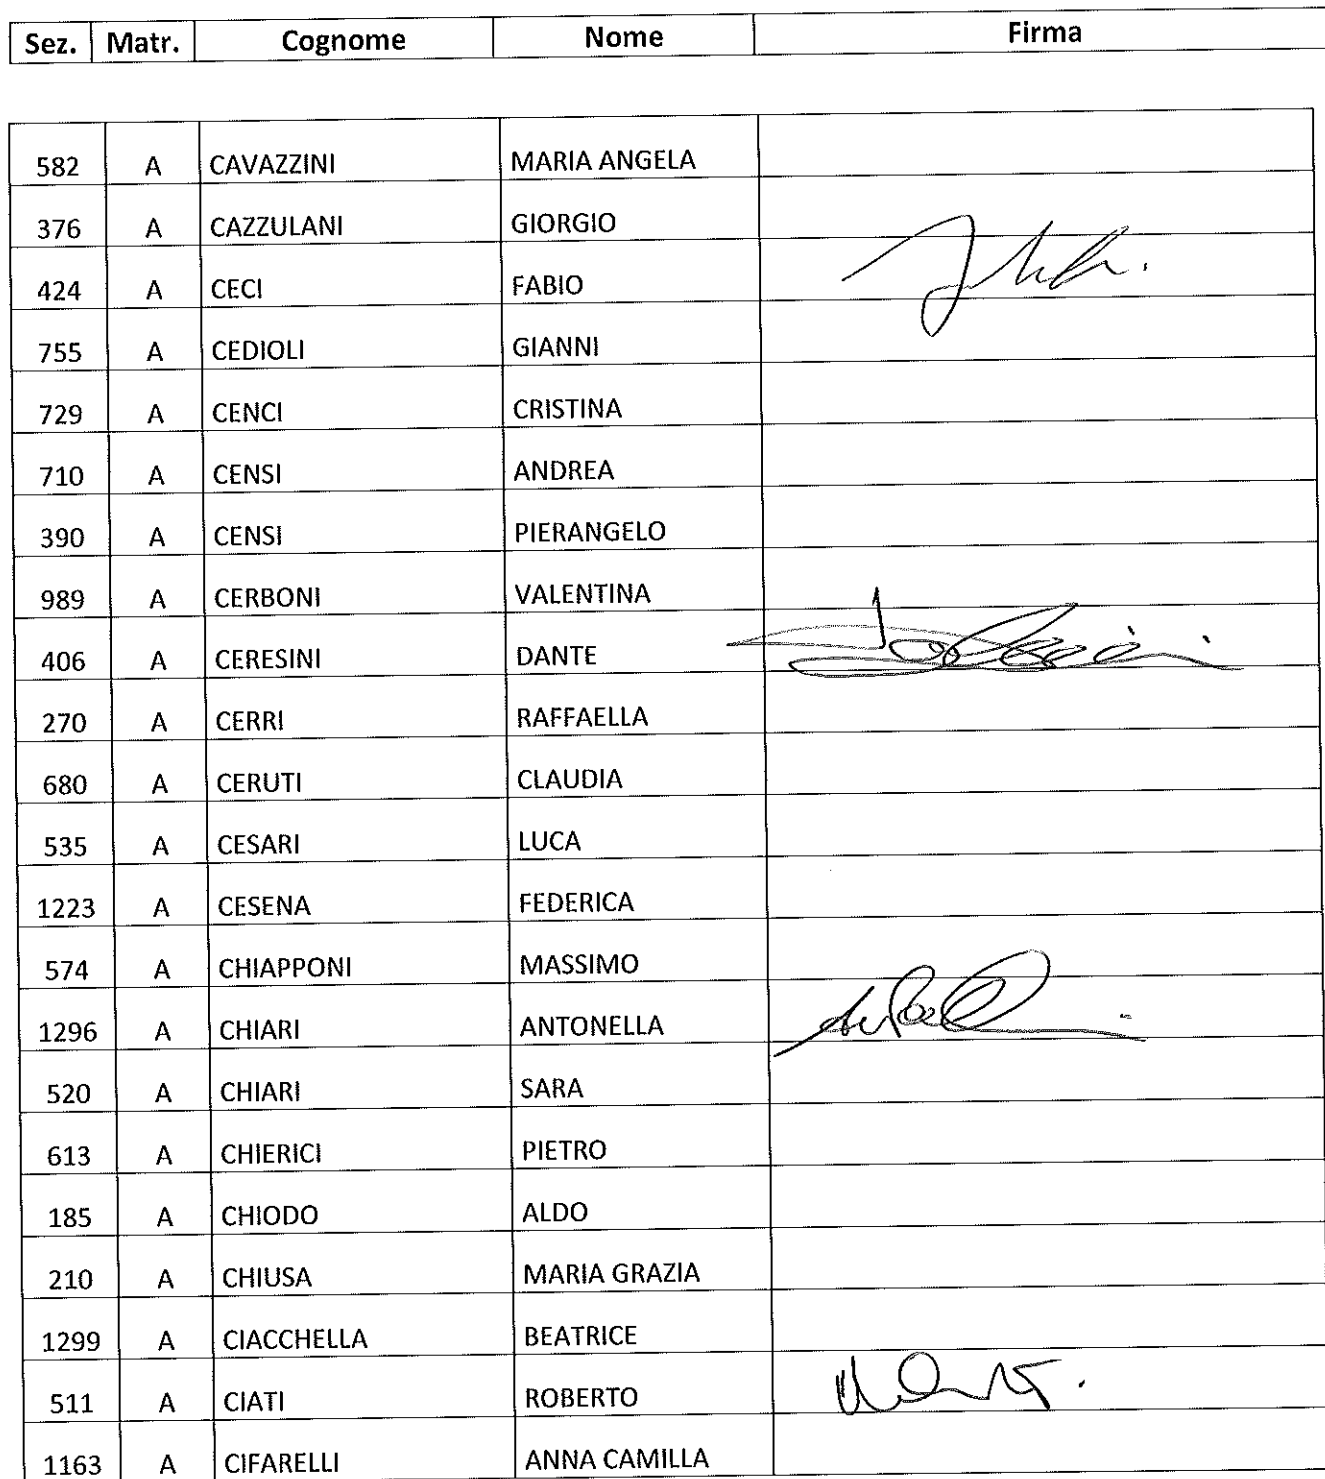 Sez. Matr. Cognome Nome Firma
582 A CAVAZZINI MARIA ANGELA
376 A CAZZULANI GIORGIO
424 A CECI FABIO
755 A CEDIOLI GIANNI
729 A CENCI CRISTINA
710 A CENSI ANDREA
390 A CENSI PIERANGELO
989 A CERBONI VALENTINA
406 A CERESINI DANTE
270 A CERRI RAFFAELLA
680 A CERUTI CLAUDIA
535 A CESARI LUCA
1223 A CESENA FEDERICA
574 A CHIAPPONI MASSIMO
1296 A CHIARI ANTONELLA
520 A CHIARI SARA
613 A CHIERICI PIETRO
185 A CHIODO ALDO
210 A CHIUSA MARIA GRAZIA
1299 A CIACCHELLA BEATRICE
511 A CIATI ROBERTO
1163 A CIFARELLI ANNA CAMILLA